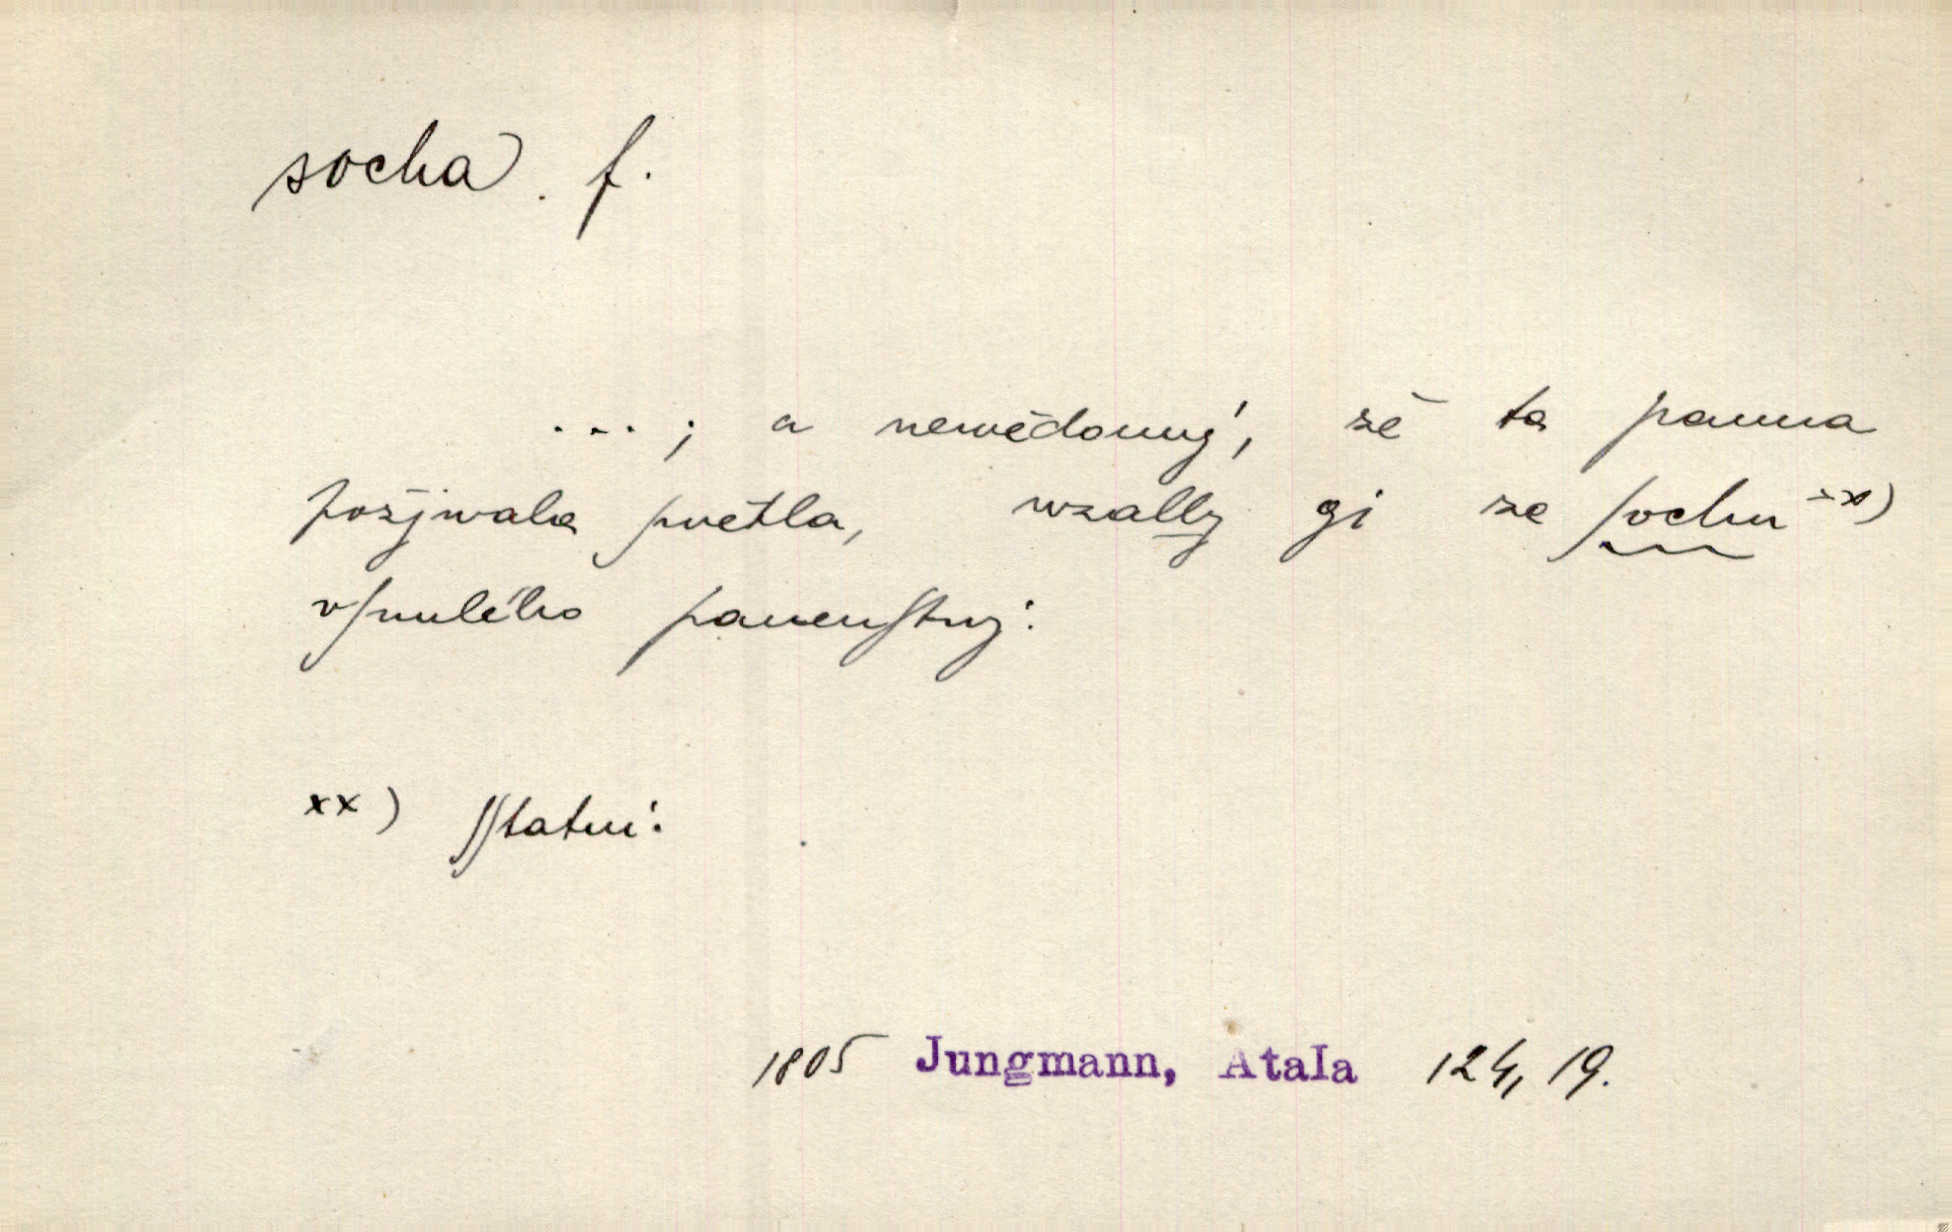 socha. f.
...; a newědomý, že ta panna
požjwala swětla, wzalby gi ze ſochu xx)
vſnulého panenſtwj.
xx) Sſtatui.
1805 Jungmann, Atala 124, 19.